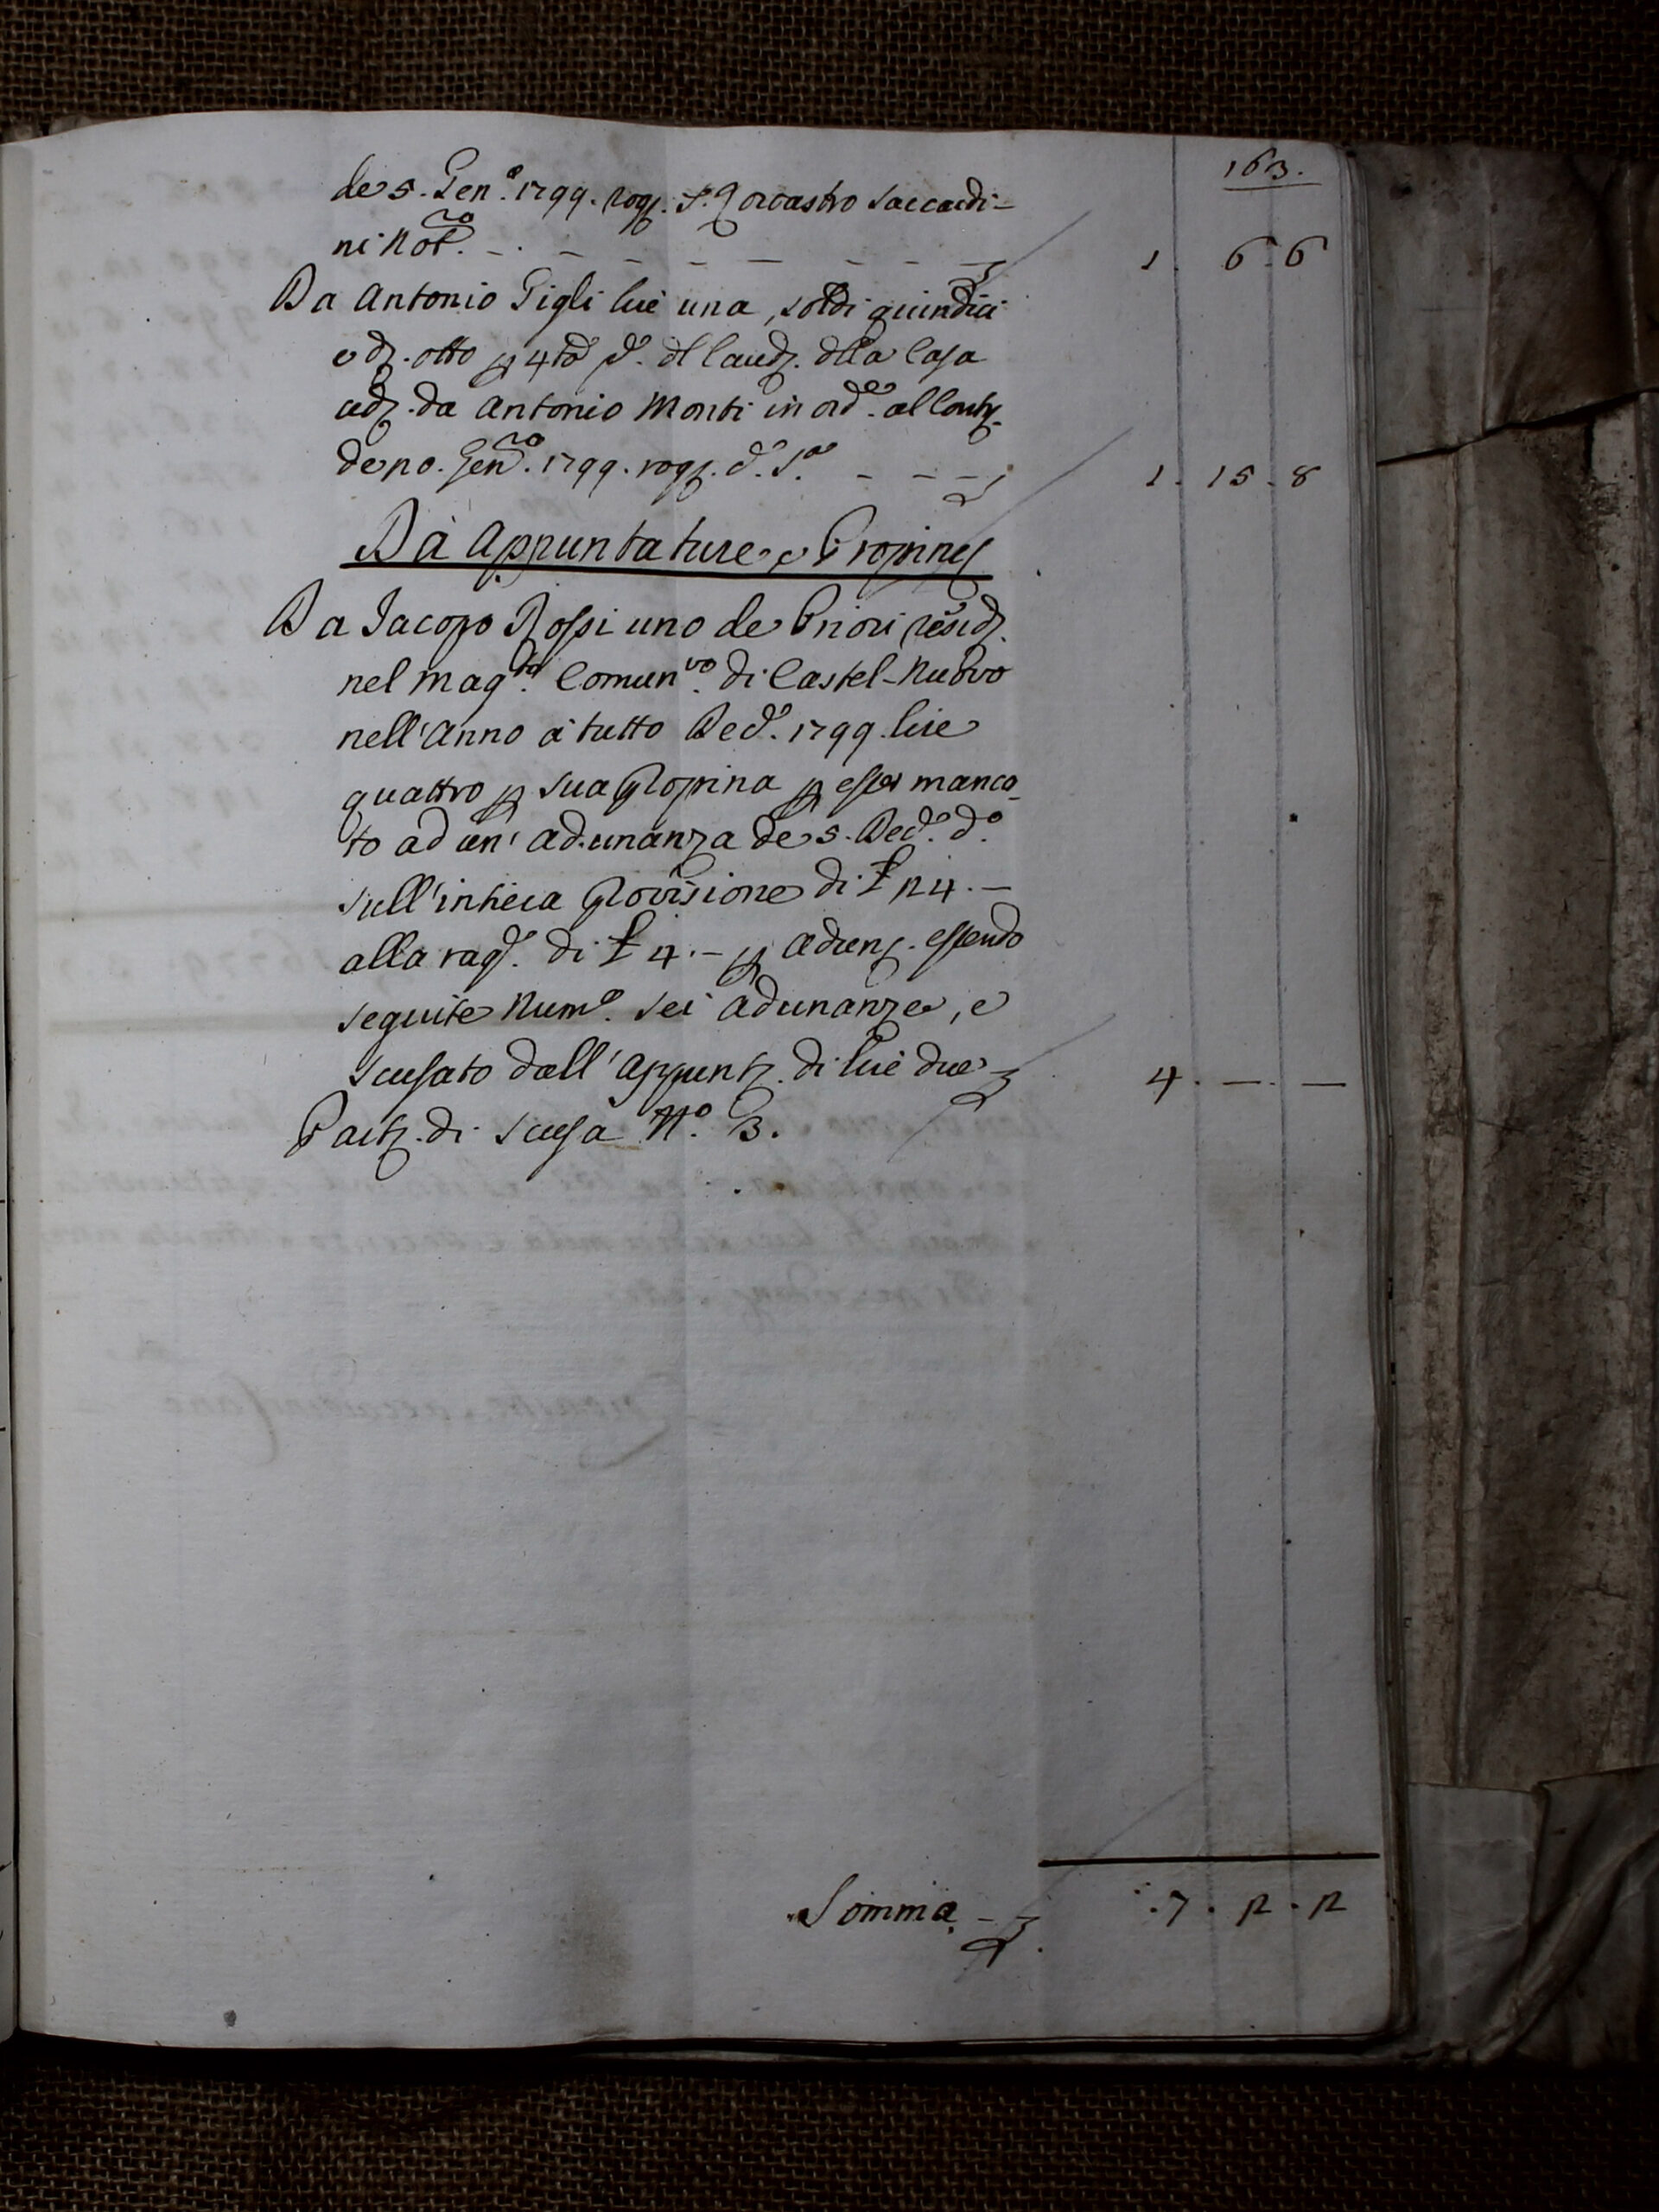 163.
de 5. Gen.º 1799. rog. S. Zoroastro Saccardi-
ni Not.ro - - - - - - - 1. 6. 6
Da Antonio Gigli lire una, soldi quindici
e d. otto p 4to d. dl laud. dlla Casa
ad. da Antonio Monti in ord.e al Cont.
de 10. Gen.ro 1799. rog. d. S.e - - - 1. 15. 8
Da Appuntature e Propine
Da Jacopo Rossi uno de Priori resid.
nel Mag.to Comun.vo di Castel-Nuovo
nell'Anno a tutto Dec.e 1799. lire
quattro p sua Propina p esser manca-
to ad un' adunanza de 5. Dec.e d.o
sull'intiera Provisione di £ 24. -
alla rag.e di £ 4. - p adun. essendo
seguite Num.o sei adunanze, e
scusato dall'Appunt. di lire due - 4. - . -
Part. di Scusa N.o 3.
Somma - - 7. 2. 2